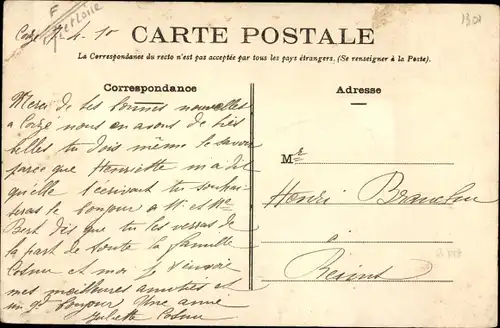 F
Corzé 4. 10
1301
CARTE POSTALE
La Correspondance du recto n'est pas acceptée par tous les pays étrangers. (Se renseigner à la Poste).
Correspondance
Adresse
Merci de tes bonnes nouvelles
a Corzé nous en avons de très
belles tu dois même le savoir
parce que Henriette m'a dit
qu'elle t'écrivait tu souhai-
teras le bonjour a M. et Mme
Bert dis que tu les verras de
la part de toute la famille
et moi je t'envoie
mes meilleures amitiés et
un gd bonjour Une amie
Juliette
Mr
Henri
à
Reims